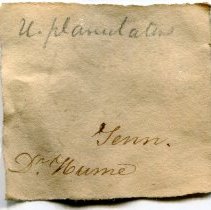 U. planulatus
Tenn.
Dr. Hume